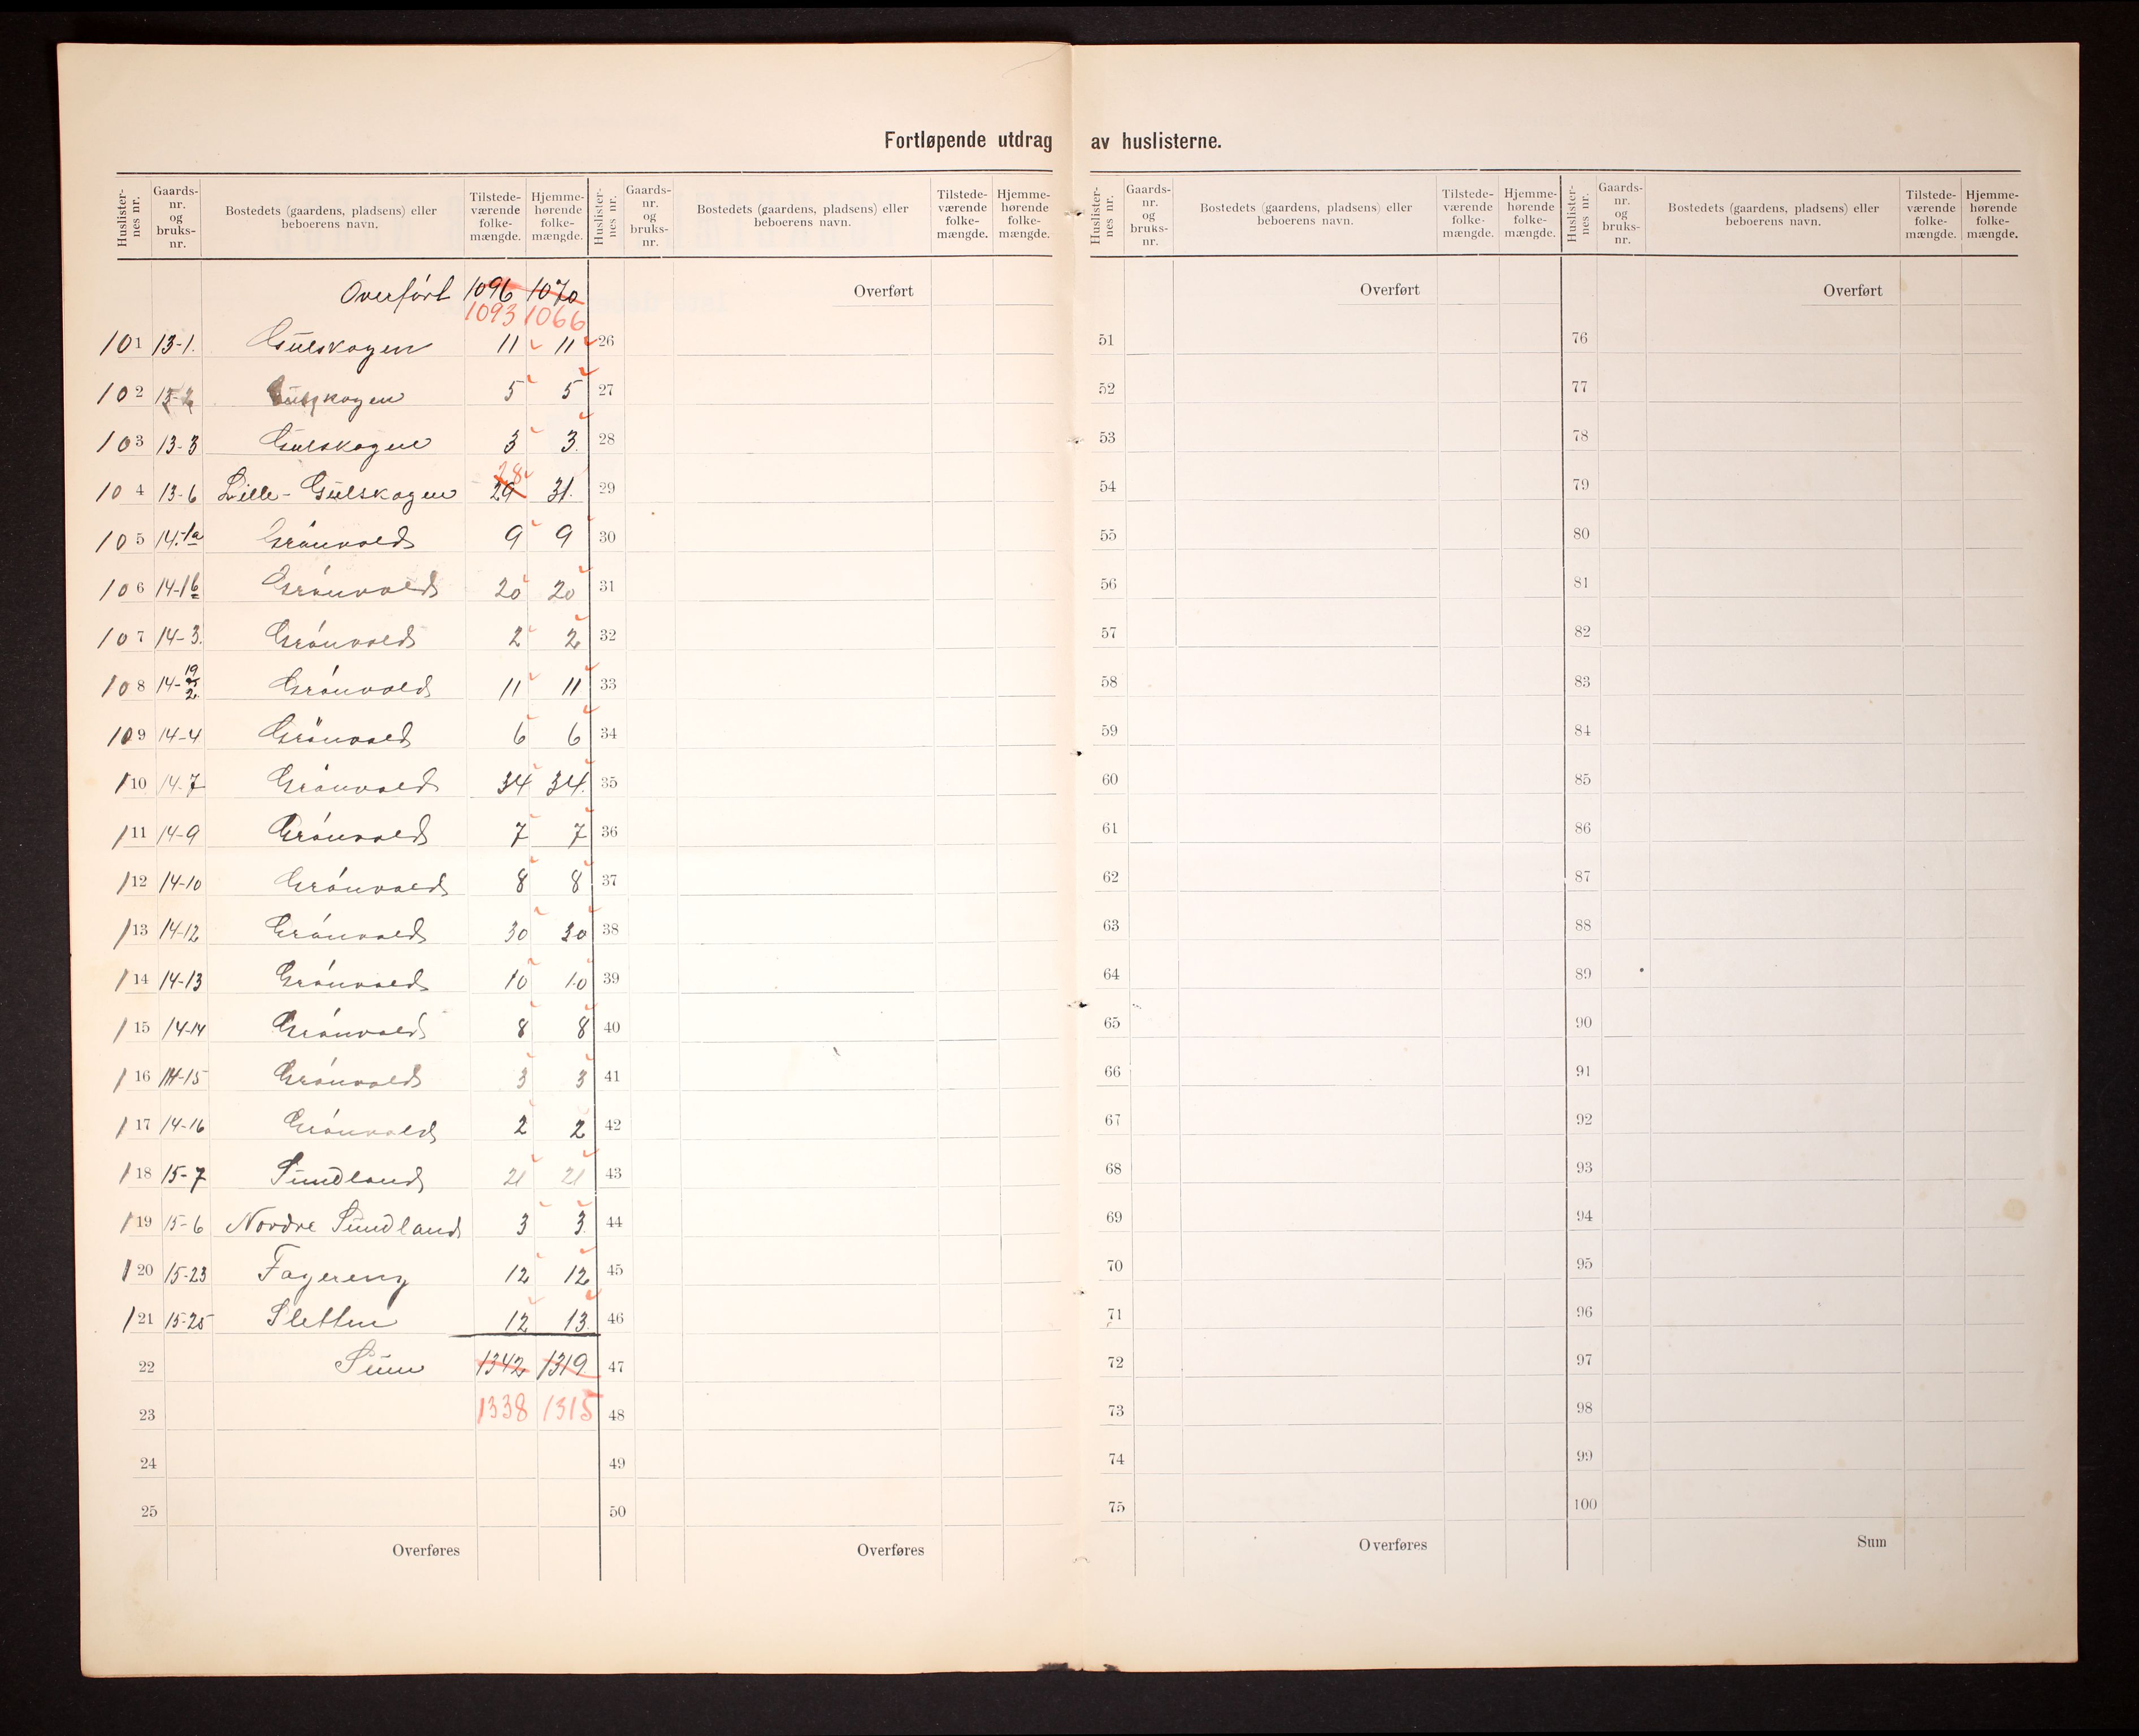 Fortløpende utdrag av huslisterne.
Huslister-nes nr. Gaards-nr. og bruks-nr. Bostedets (gaardens, pladsens) eller beboerens navn. Tilstede-værende folke-mængde. Hjemme-hørende folke-mængde.
Overført 1096 1070
1093 1066
101 13-1. Gülskogen 11 11
102 13-2 Gülskogen 5 5
103 13-3 Gülskogen 3 3.
28
104 13-6 Lille-Gülskogen 29 31.
105 14-1a Grønvold 9 9
106 14-1b Grønvold 20 20
107 14-3. Grønvold 2 2
108 14- Grønvold 11 11
109 14-4 Grønvold 6 6
110 14-7 Grønvold 34 34.
111 14-9 Grønvold 7 7
112 14-10 Grønvold 8 8
113 14-12 Grønvold 30 30
114 14-13 Grønvold 10 10
115 14-14 Grønvold 8 8
116 14-15 Grønvold 3 3
117 14-16 Grønvold 2 2
118 15-7 Sündland 21 21
119 15-6 Nordre Sündland 3 3.
120 15-23 Fagereng 12 12
121 15-25 Sletten 12 13.
22 Süm 1342 1319
23 1338 1315
24
25
Overføres
Huslister-nes nr. Gaards-nr. og bruks-nr. Bostedets (gaardens, pladsens) eller beboerens navn. Tilstede-værende folke-mængde. Hjemme-hørende folke-mængde.
Overført
26
27
28
29
30
31
32
33
34
35
36
37
38
39
40
41
42
43
44
45
46
47
48
49
50
Overføres
Huslister-nes nr. Gaards-nr. og bruks-nr. Bostedets (gaardens, pladsens) eller beboerens navn. Tilstede-værende folke-mængde. Hjemme-hørende folke-mængde.
Overført
51
52
53
54
55
56
57
58
59
60
61
62
63
64
65
66
67
68
69
70
71
72
73
74
75
Overføres
Huslister-nes nr. Gaards-nr. og bruks-nr. Bostedets (gaardens, pladsens) eller beboerens navn. Tilstede-værende folke-mængde. Hjemme-hørende folke-mængde.
Overført
76
77
78
79
80
81
82
83
84
85
86
87
88
89
90
91
92
93
94
95
96
97
98
99
100
Sum